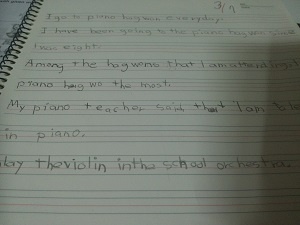 3/7
I go to piano hagwon everyday.
I have been going to the piano hagwon since
I was eight.
Among the hagwons that I am attending I
piano hagwo the most.
My piano teacher said that I am
in piano.
play the violin in the school orchestra.